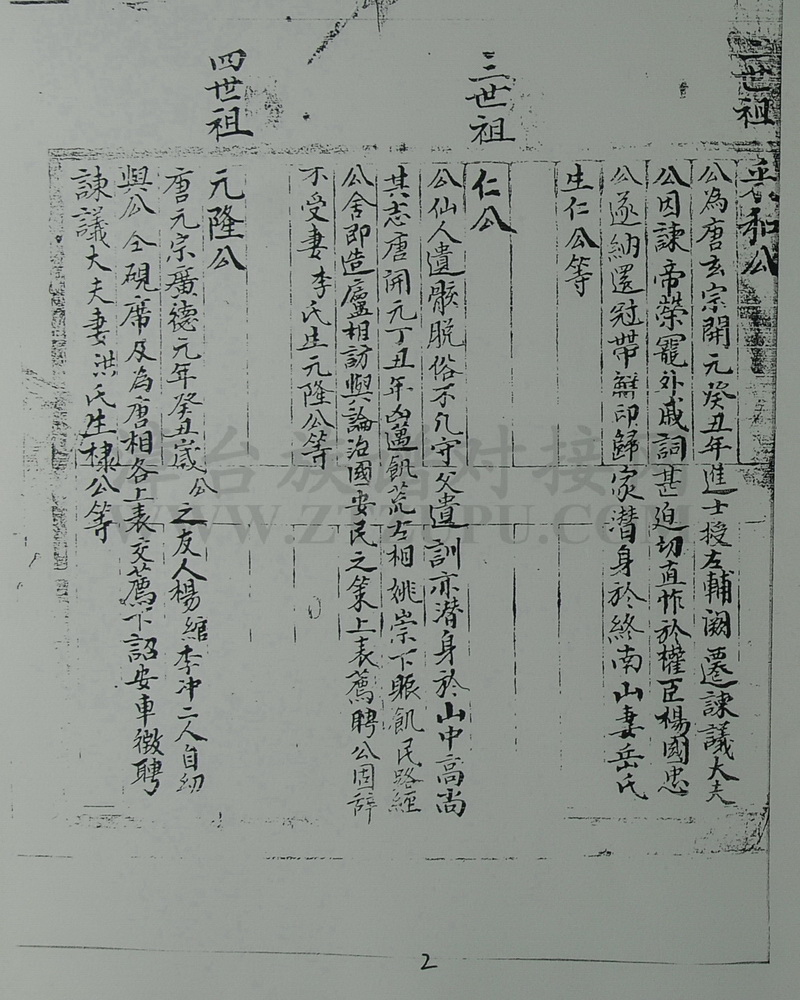 二世祖
和公
公為唐玄宗開元癸丑年進士授左輔阙遷諫議大夫
公因諫帝榮寵外戚詞甚迫切直忤於權臣楊國忠
公遂納還冠帶觧印歸家潜身於終南山妻岳氏
生仁公等
三世祖
仁公
公仙人遺骸脱俗不凡守父遺訓亦潜身於山中高尚
其志唐開元丁丑年凶邁飢荒古相姚崇下賑飢民路經
公舍即造廬相訪與論治國安民之策上表薦聘公固辞
不受妻李氏生元隆公等
四世祖
元隆公
唐元宗廣德元年癸丑歲公之友人楊綰李冲二人自幼
與公仝硯席及為唐相各上表交薦下詔安車徵聘
諫議大夫妻洪氏生棣公等
台族譜对接
2